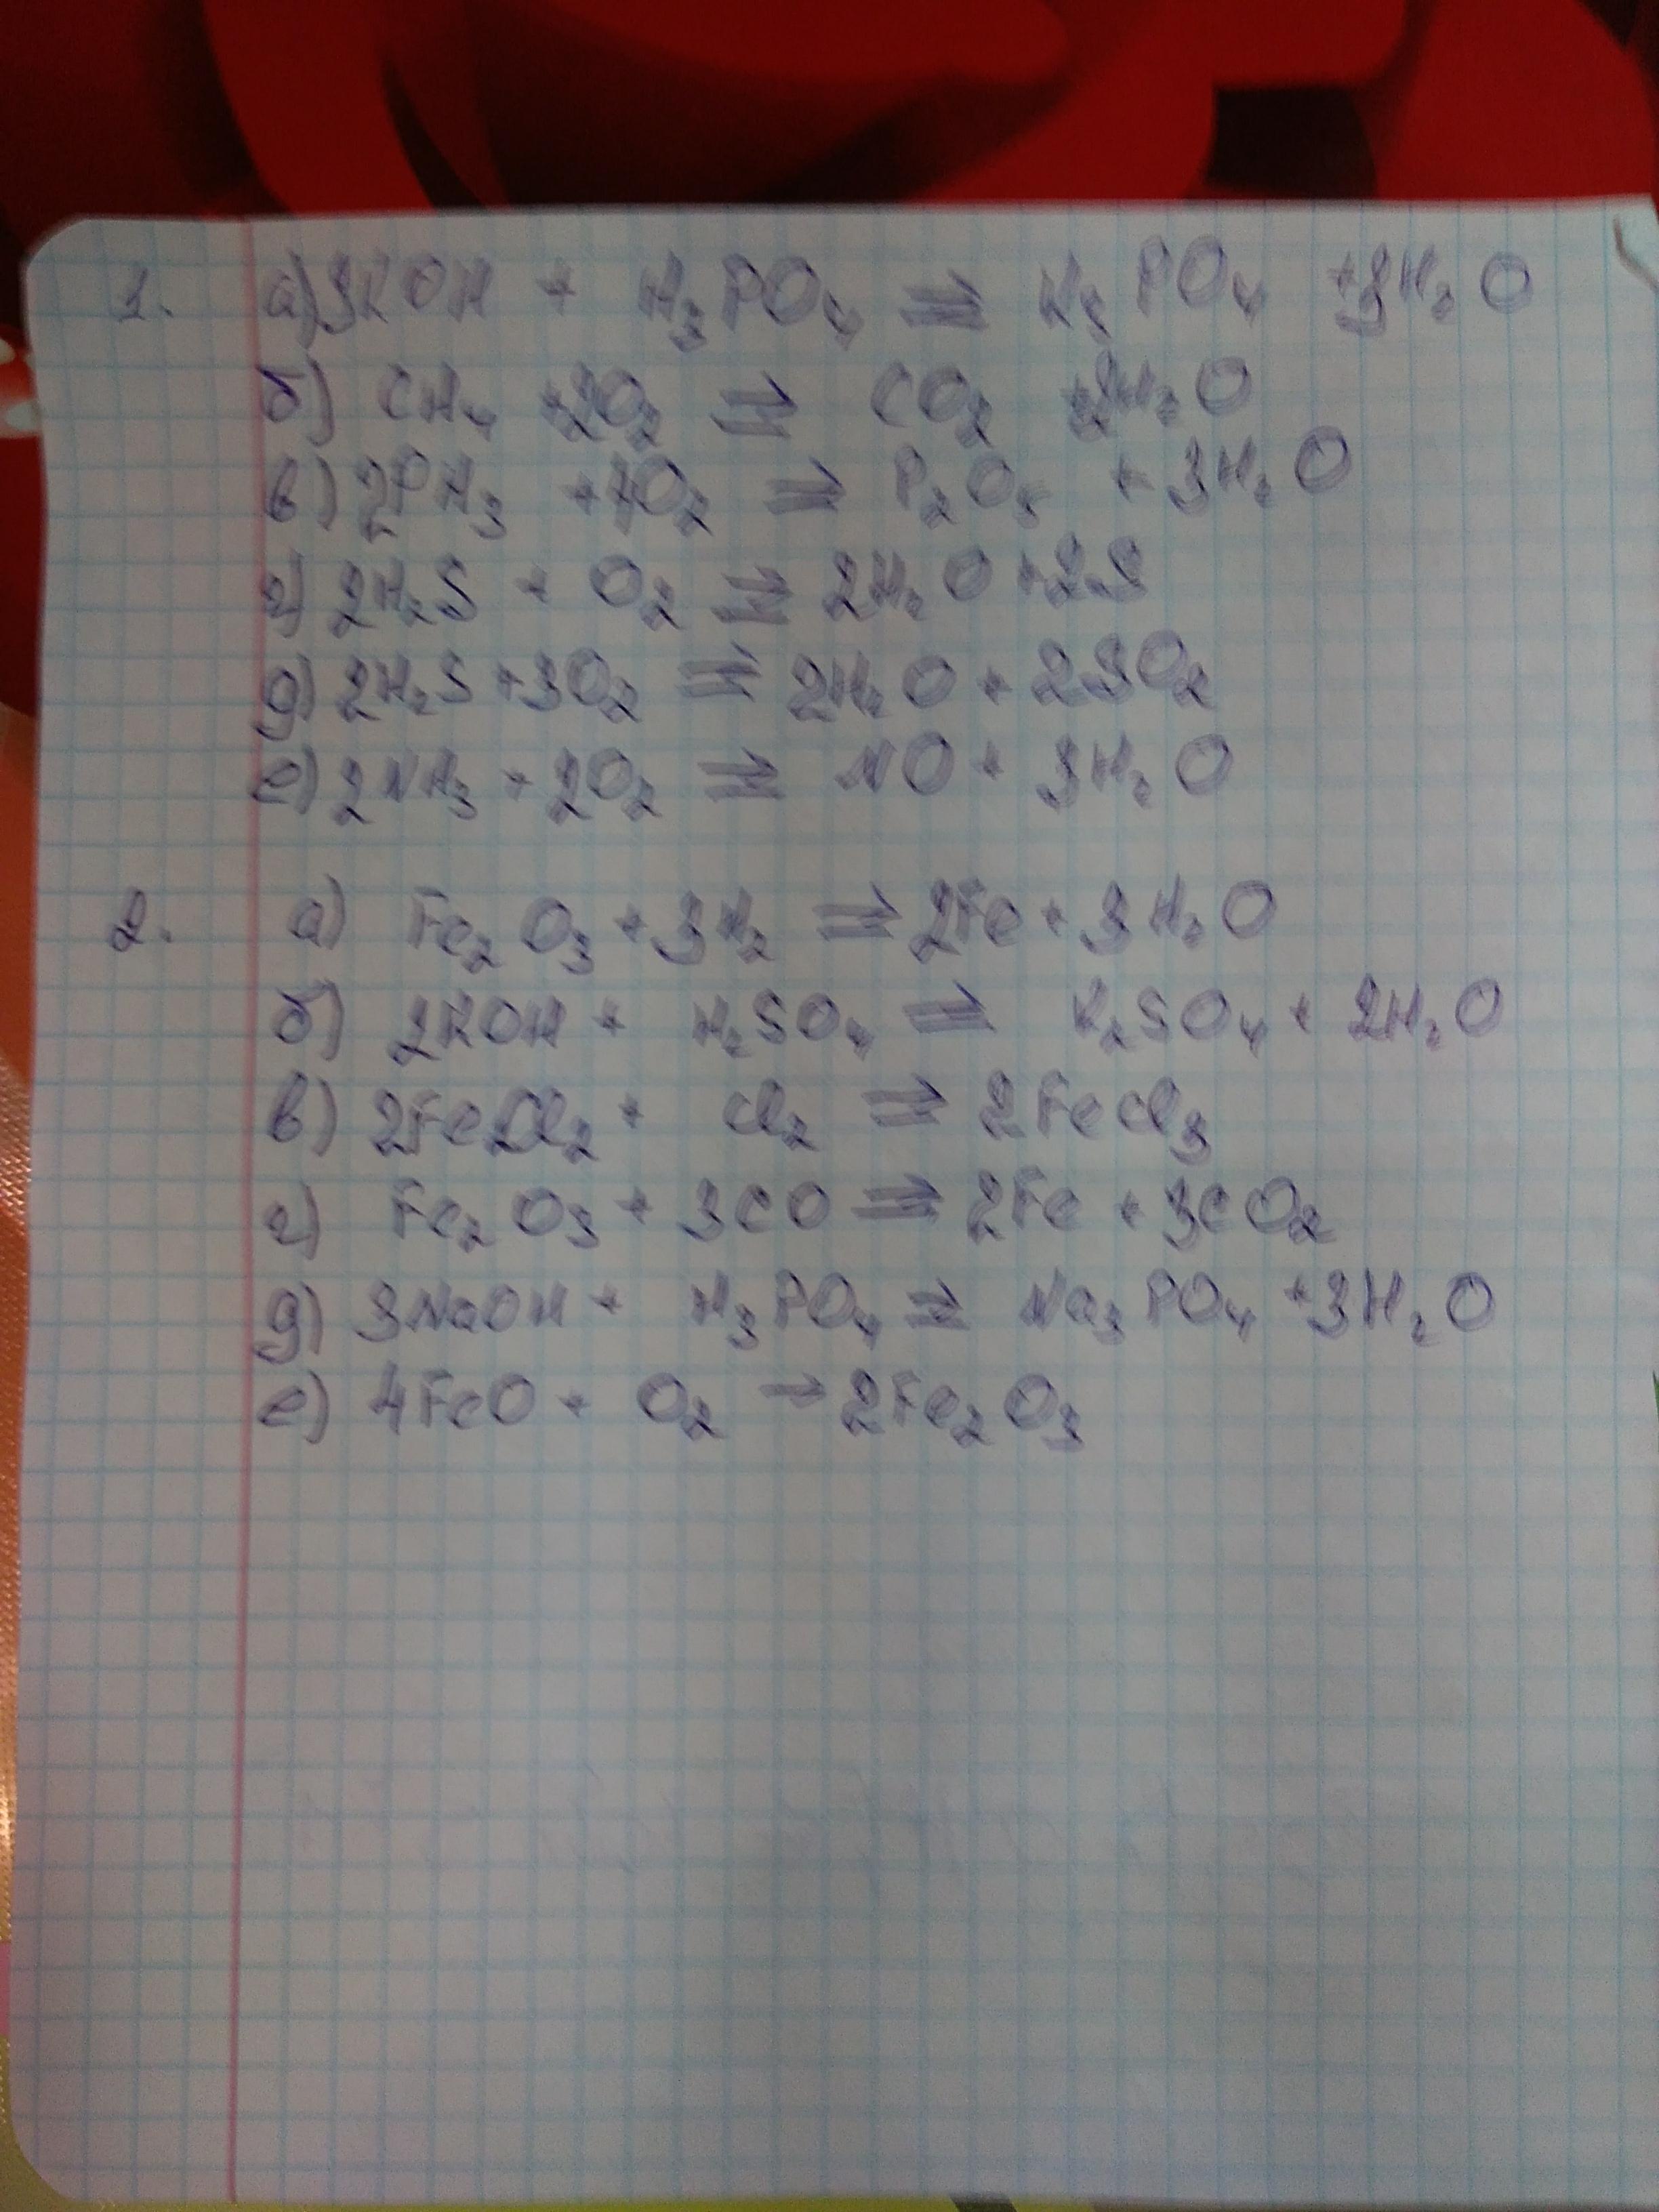 1. а) 3KOH + H₃PO₄ ⇌ K₃PO₄ + 3H₂O
б) CH₄ + 2O₂ ⇌ CO₂ + 2H₂O
в) 2PH₃ + 4O₂ ⇌ P₂O₅ + 3H₂O
г) 2H₂S + O₂ ⇌ 2H₂O + 2S
д) 2H₂S + 3O₂ ⇌ 2H₂O + 2SO₂
е) 2NH₃ + 2O₂ ⇌ NO + 3H₂O
2. а) Fe₂O₃ + 3H₂ ⇌ 2Fe + 3H₂O
б) 2KOH + H₂SO₄ ⇌ K₂SO₄ + 2H₂O
в) 2FeCl₂ + Cl₂ ⇌ 2FeCl₃
г) Fe₂O₃ + 3CO ⇌ 2Fe + 3CO₂
д) 3NaOH + H₃PO₄ ⇌ Na₃PO₄ + 3H₂O
е) 4FeO + O₂ → 2Fe₂O₃